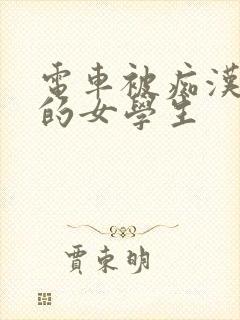 電車被痴漢
的女學生
賈東明